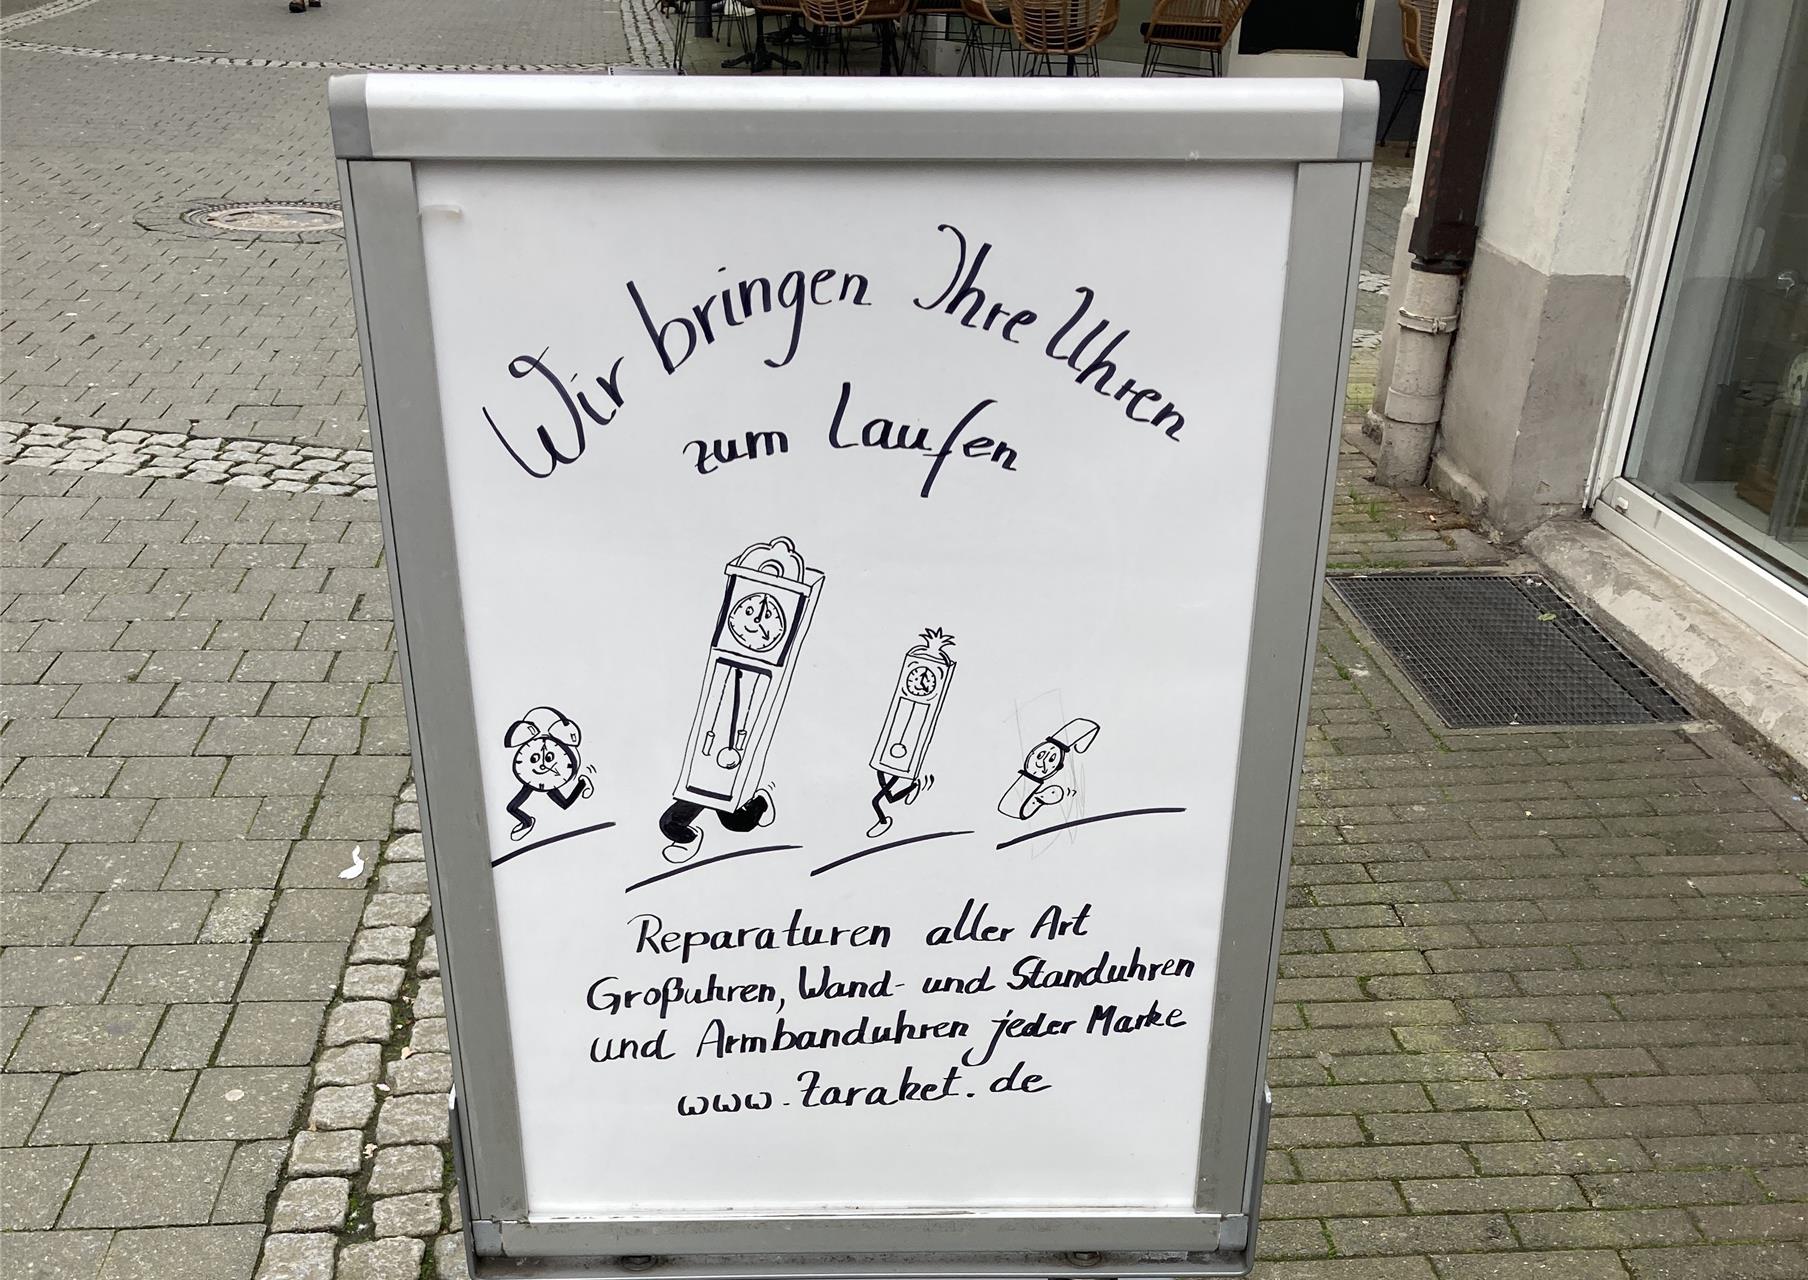 Wir bringen Ihre Uhren
zum Laufen
Reparaturen aller Art
Großuhren, Wand- und Standuhren
und Armbanduhren jeder Marke
www.Zaraket.de